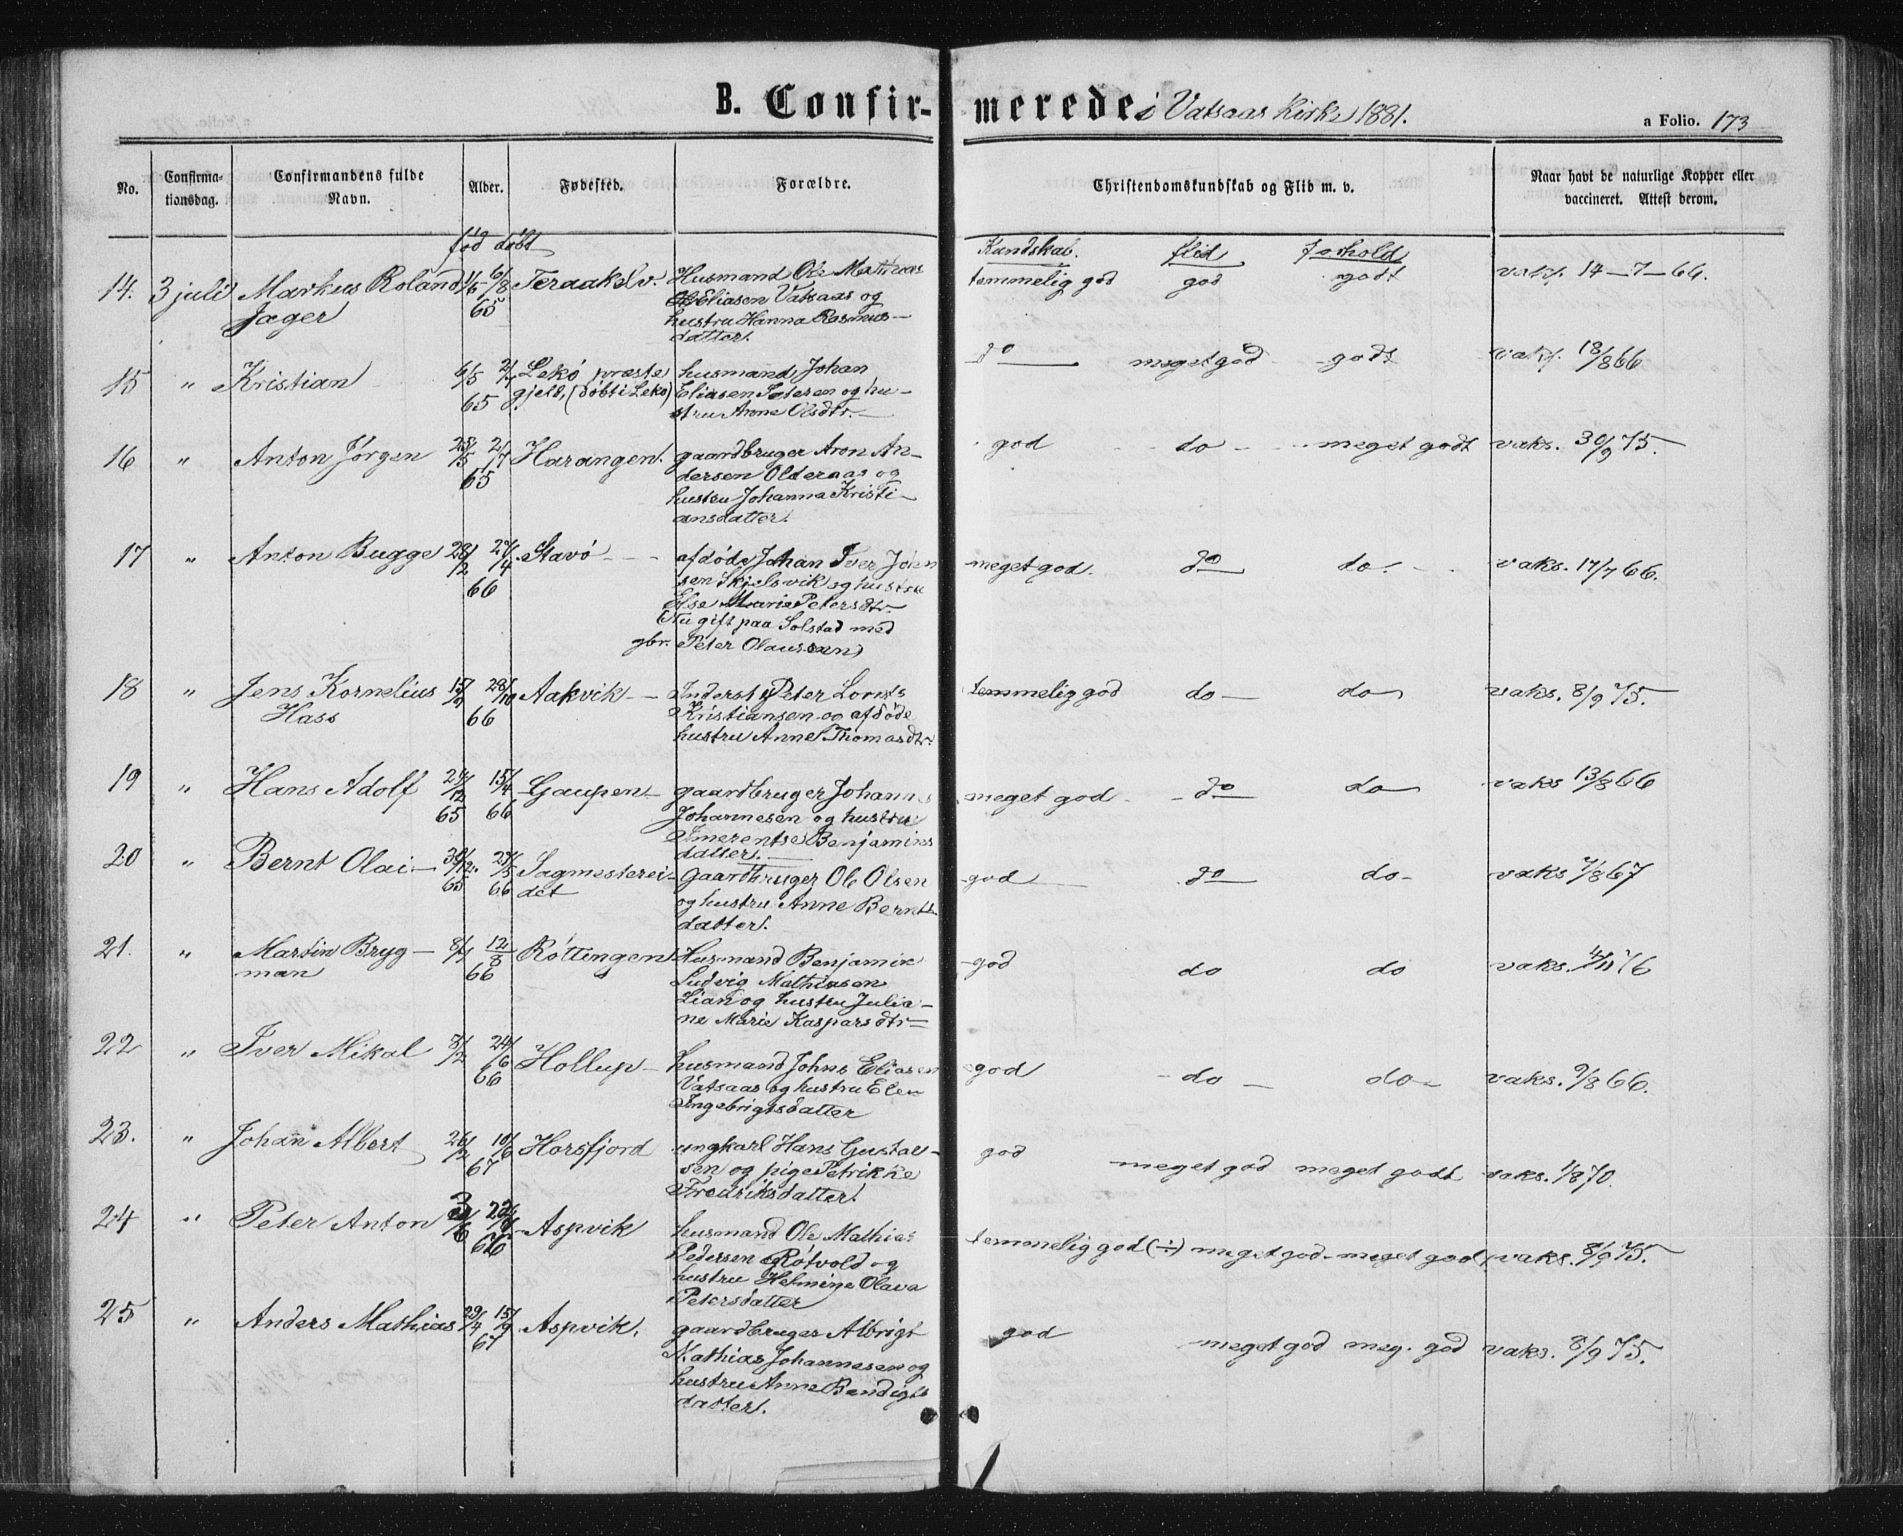 B. Confir-merede i Vatsaas Kirke 1881.
a Folio. 173
No.
Confirma-
tionsdag.
Confirmandens fulde
Navn.
Alder.
Fødested.
Forældre.
Christendomskundskab og Flid m. v.
Naar havt de naturlige Kopper eller
vaccineret. Attest derom.
fød døbt
Kundskab. flid forhold
14. 3 juli Markus Roland 1/5 6/8 Teraakelv. Husmand Ole Mathias temmelig god god godt vaks. 14-7-66.
Jæger 65 Eliasen Vatsaas og
hustru Hanna Rasmus-
datter.
15 " Kristian 6/5 2/7 Lekø præste husmand Johan do meget god godt vaks. 18/8 66
65 gjeld, (døbt i Lekø) Eliasen og hu-
stru Anne Olsdtr.
16 " Anton Jørgen 25/5 2/7 Harangen. gaardbruger Aron An- god do meget godt vaks. 30/9 75.
65 dersen Olderaas og
hustru Johanna Kristi-
ansdatter.
17 " Anton Bugge 28/2 27/4 Stavø afdøde Johan Iver John meget god. do do. vaks. 17/7 66.
66 sen Skjelsvik og hustru
Else Marie Petersdtr.
(nu gift paa Solstad med
gbr. Peter Olaussen)
18 " Jens Kornelius 15/9 28/10 Aakvik Inderst Peter Lornts temmelig god do do vaks. 8/9 75.
Hass 66 Kristiansen og afdøde
hustru Anne Thomasdtr.
19 " Hans Adolf 24/12 15/4 Gaupen gaardbruger Johannes meget god do do vaks 13/8 66
65 66 Johannesen og hustru
Imerentse Benjamins
datter.
20 " Bernt Olai 30/12. 27/5 Sagmesterei- gaardbruger Ole Olsen god do do vaks 7/8 67
65 66 det og hustru Anne Bernts
datter.
21. " Martin Bryg- 8/7 12/8 Røttingen Husmand Benjamin god do do vaks. 4/11 76
man 66 Ludvig Mathisen
Lian og hustru Julia-
ne Marie Kaspersdtr
22 " Iver Mikal 8/2 24/6 Hollup husmand Johns Eliasen god do do vaks. 9/8 66.
66 Vatsaas og hustru Elen
Ingebrigtsdatter
23. " Johan Albert 26/2 10/6 Horsfjord ungkarl Hans Gustav- god meget god meget godt vaks. 1/8 70.
67 sen og pige Petrikke
Fredriksdatter.
24 " Peter Anton Aspvik husmand Ole Mathias temmelig god (÷) meget god meget godt vaks. 8/9 75.
66 Pedersen Røtvold og
hustru Helmine Olava
Petersdatter
25 " Anders Mathias 29/4 15/9 Aspvik. gaardbruger Albrigt god meget god meg. god vaks. 8/9 75.
67 Mathias Johannesen og
hustru Anne Bendigts
datter.